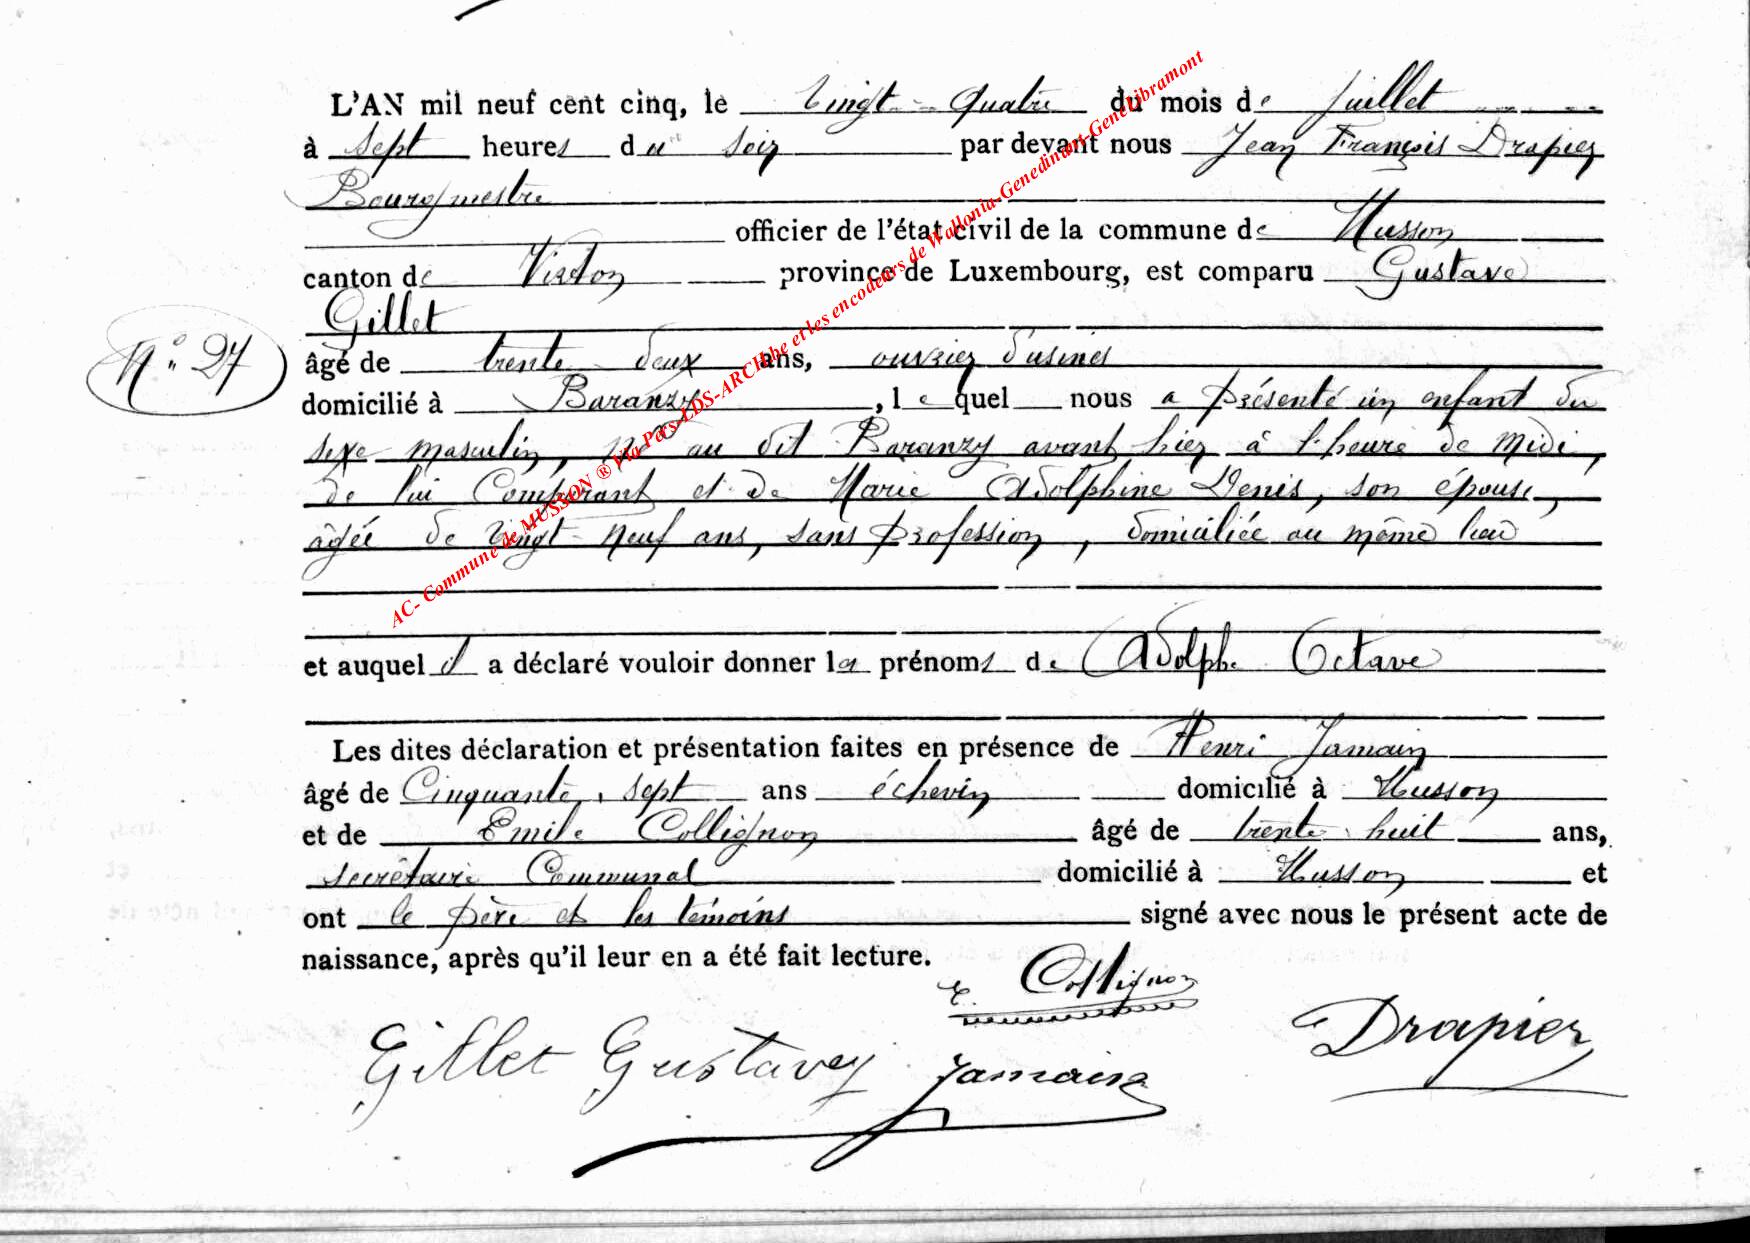 L'AN mil neuf cent cinq, le vingt-quatre du mois de juillet
à sept heures du soir par devant nous Jean François Drapier
Bourgmestre
officier de l'état civil de la commune de Musson
canton de Virton province de Luxembourg, est comparu Gustave
Gillet
N° 27
âgé de trente-deux ans, ouvrier d'usines
domicilié à Baranzy, lequel nous a présenté un enfant du
sexe masculin, né au dit Baranzy avant hier à l'heure de midi,
de lui Comparant et de Marie Adolphine Denis, son épouse,
âgée de vingt-neuf ans, sans profession, domiciliée au même lieu
et auquel il a déclaré vouloir donner les prénoms de Adolphe Octave
Les dites déclaration et présentation faites en présence de Henri Jamain
âgé de Cinquante-sept ans échevin domicilié à Musson
et de Emile Collignon âgé de trente-huit ans,
secrétaire Communal domicilié à Musson et
ont le père et les témoins signé avec nous le présent acte de
naissance, après qu'il leur en a été fait lecture.
E. Collignon
Gillet Gustave Jamain Drapier
AC- Commune de MUSSON ® Via Pars-LDS-ARCH.be et les encodeurs de Wallonia-Genedinant-GeneLibramont